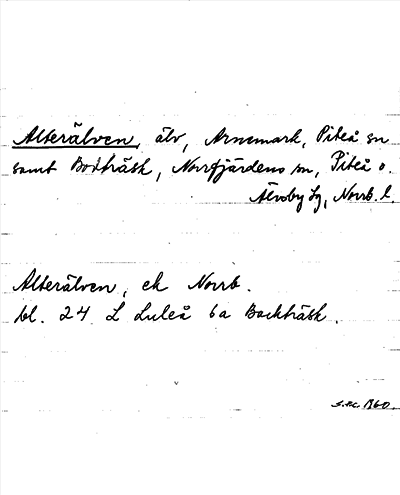 Alterälven, älv, Arnemark, Piteå sn
samt Bodträsk, Norrfjärdens sn, Piteå o.
Älvsby tg, Norrb. l.
Alterälven, ek Norrb.
bl. 24 L Luleå 6a Backträsk.
1960.